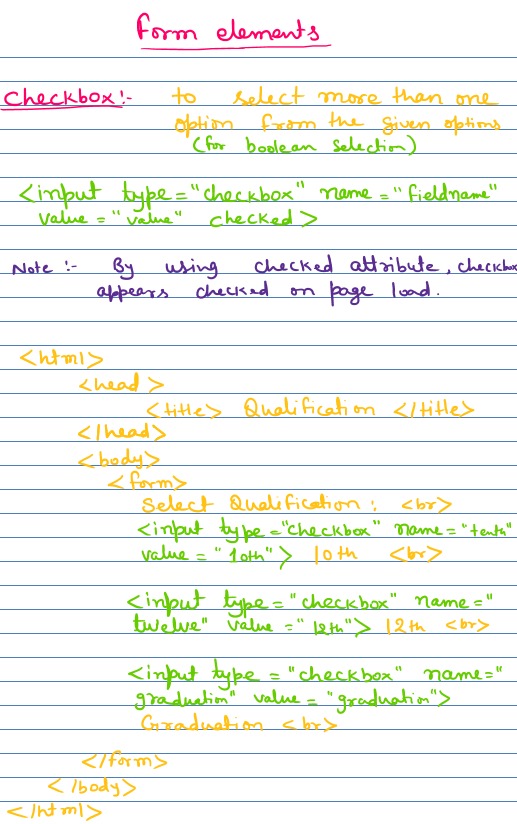 Form elements
Checkbox:- to select more than one
option from the given options
(for boolean selection)
<input type="checkbox" name="fieldname"
value="value" checked>
Note :- By using checked attribute, checkbox
appears checked on page load.
<html>
<head>
<title> Qualification </title>
</head>
<body>
<form>
Select Qualification: <br>
<input type="checkbox" name="tenth"
value="10th"> 10th <br>
<input type="checkbox" name="
twelve" value="12th"> 12th <br>
<input type="checkbox" name="
graduation" value="graduation">
Graduation <br>
</form>
</body>
</html>